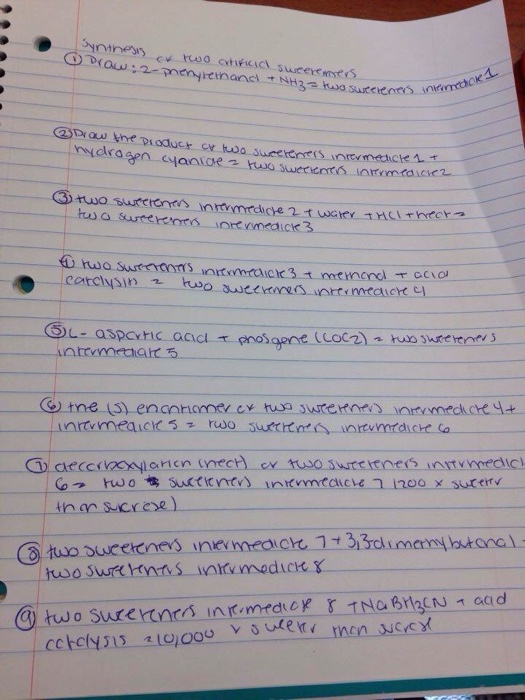 Synthesis of two artificial sweeteners
① Draw: 2-phenylethanal + NH3 = two sweeteners intermediate 1
② Draw the product of two sweeteners intermediate 1 +
hydrogen cyanide = two sweeteners intermediate 2
③ two sweeteners intermediate 2 + water + HCl + heat =
two sweeteners intermediate 3
④ two sweeteners intermediate 3 + methanol + acid
catalysis = two sweeteners intermediate 4
⑤ L-aspartic acid + phosgene (COC2) = two sweeteners
intermediate 5
⑥ the (S) enantiomer of two sweeteners intermediate 4 +
intermediate 5 = two sweeteners intermediate 6
⑦ decarboxylation (heat) of two sweeteners intermedic
6 = two sweeteners intermediate 7 (200 x sweeter
than sucrose)
⑧ two sweeteners intermediate 7 + 3,3dimethylbutanal -
two sweeteners intermediate 8
⑨ two sweeteners intermediate 8 + NaBH3CN + acid
catalysis = 10,000 x sweeter than sucrose